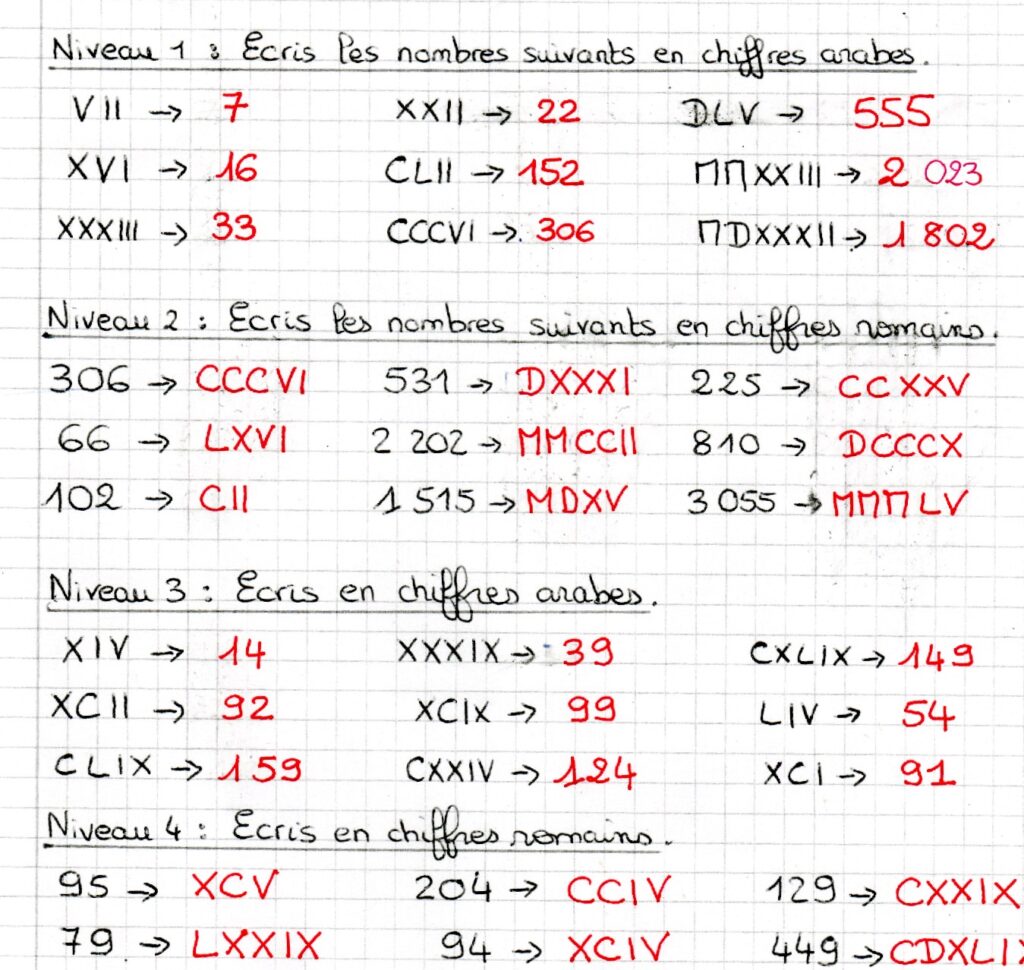 Niveau 1 : Ecris les nombres suivants en chiffres arabes.
VII → 7 XXII → 22 DLV → 555
XVI → 16 CLII → 152 MMXXIII → 2 023
XXXIII → 33 CCCVI → 306 MDXXXII → 1 802
Niveau 2 : Ecris les nombres suivants en chiffres romains.
306 → CCCVI 531 → DXXXI 225 → CCXXV
66 → LXVI 2 202 → MMCCII 810 → DCCCX
102 → CII 1 515 → MDXV 3 055 → MMMLV
Niveau 3 : Ecris en chiffres arabes.
XIV → 14 XXXIX → 39 CXLIX → 149
XCII → 92 XCIX → 99 LIV → 54
CLIX → 159 CXXIV → 124 XCI → 91
Niveau 4 : Ecris en chiffres romains.
95 → XCV 204 → CCIV 129 → CXXIX
79 → LXXIX 94 → XCIV 449 → CDXLIX